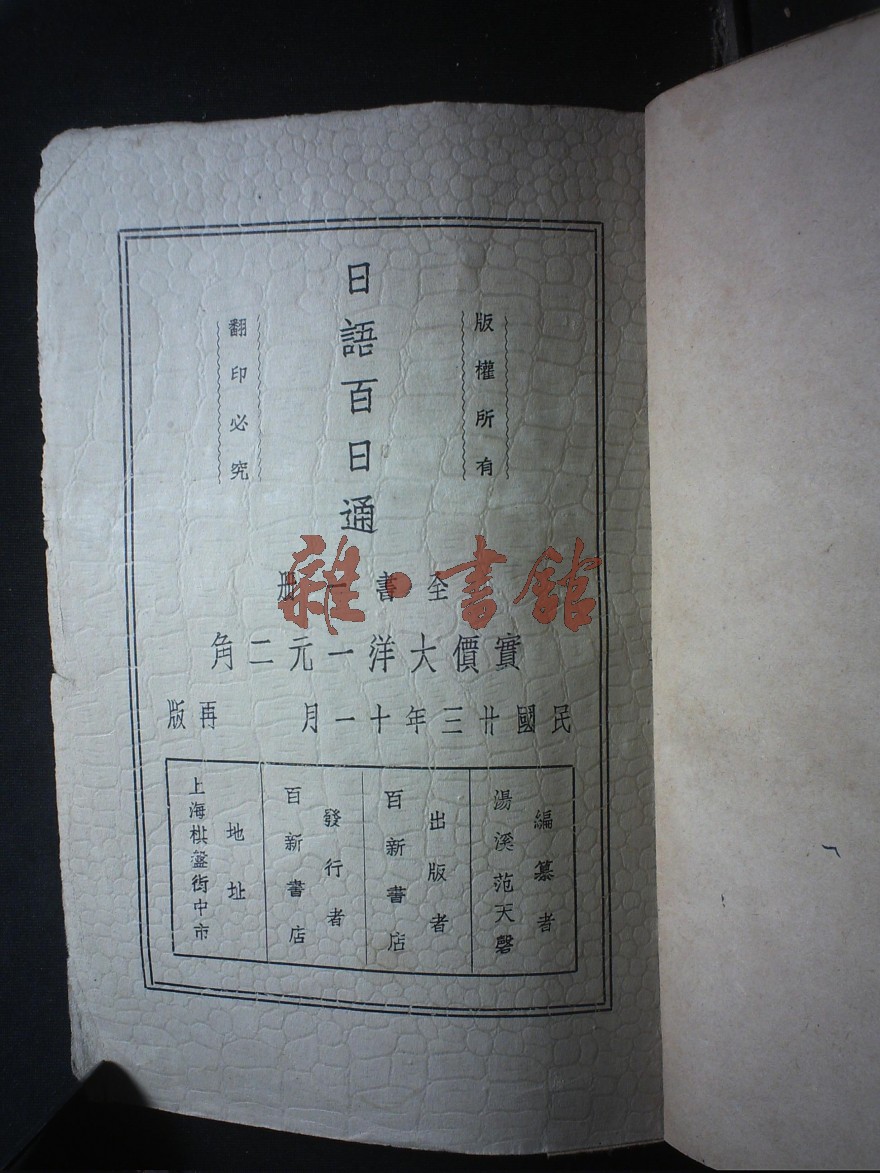 版權所有
日語百日通
翻印必究
全書一册
雜·書館
實價大洋一元二角
民國廿三年十一月 再版
編纂者
湯溪范天磬
出版者
百新書店
發行者
百新書店
地址
上海棋盤街中市